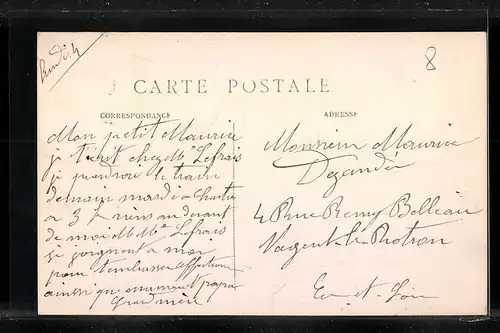 Lundi 4
8
CARTE POSTALE
CORRESPONDANCE
ADRESSE
Mon petit Maurice
je t'ecrit chez Mme Lefrais
je prendrai le train
demain mardi a Chartre
a 3 h viens au devant
de moi M et Mme Lefrais
se joignent a moi
pour t'embrasser
ainsi que maman et papa
Grand mère
Monsieur Maurice
4 Rue Remy Belleau
Nogent le Rotrou
Eu-et-Loir